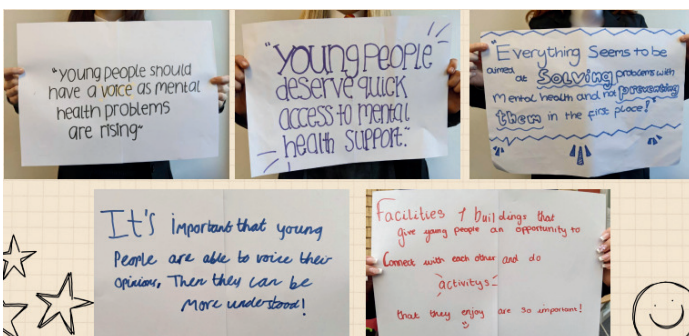 "young people should
have a voice as mental
health problems
are rising"
"YOUNG PEOPLE
deserve quick
access to mental
health support."
"Everything Seems to be
aimed at Solving problems with
mental health and not preventing
them in the first place!"
It's important that young
People are able to voice their
opinions, Then they can be
More understood!
Facilities / buildings that
give young people an opportunity to
Connect with each other and do
activitys
that they enjoy are so important!